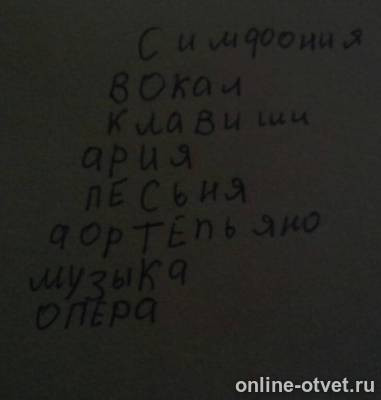 Симфония
вокал
клавиши
ария
песьня
фортепьяно
музыка
опера
online-otvet.ru